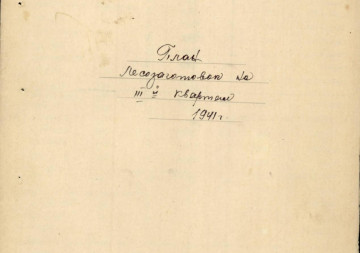 План
лесозаготовок на
III й квартал
1941 г.